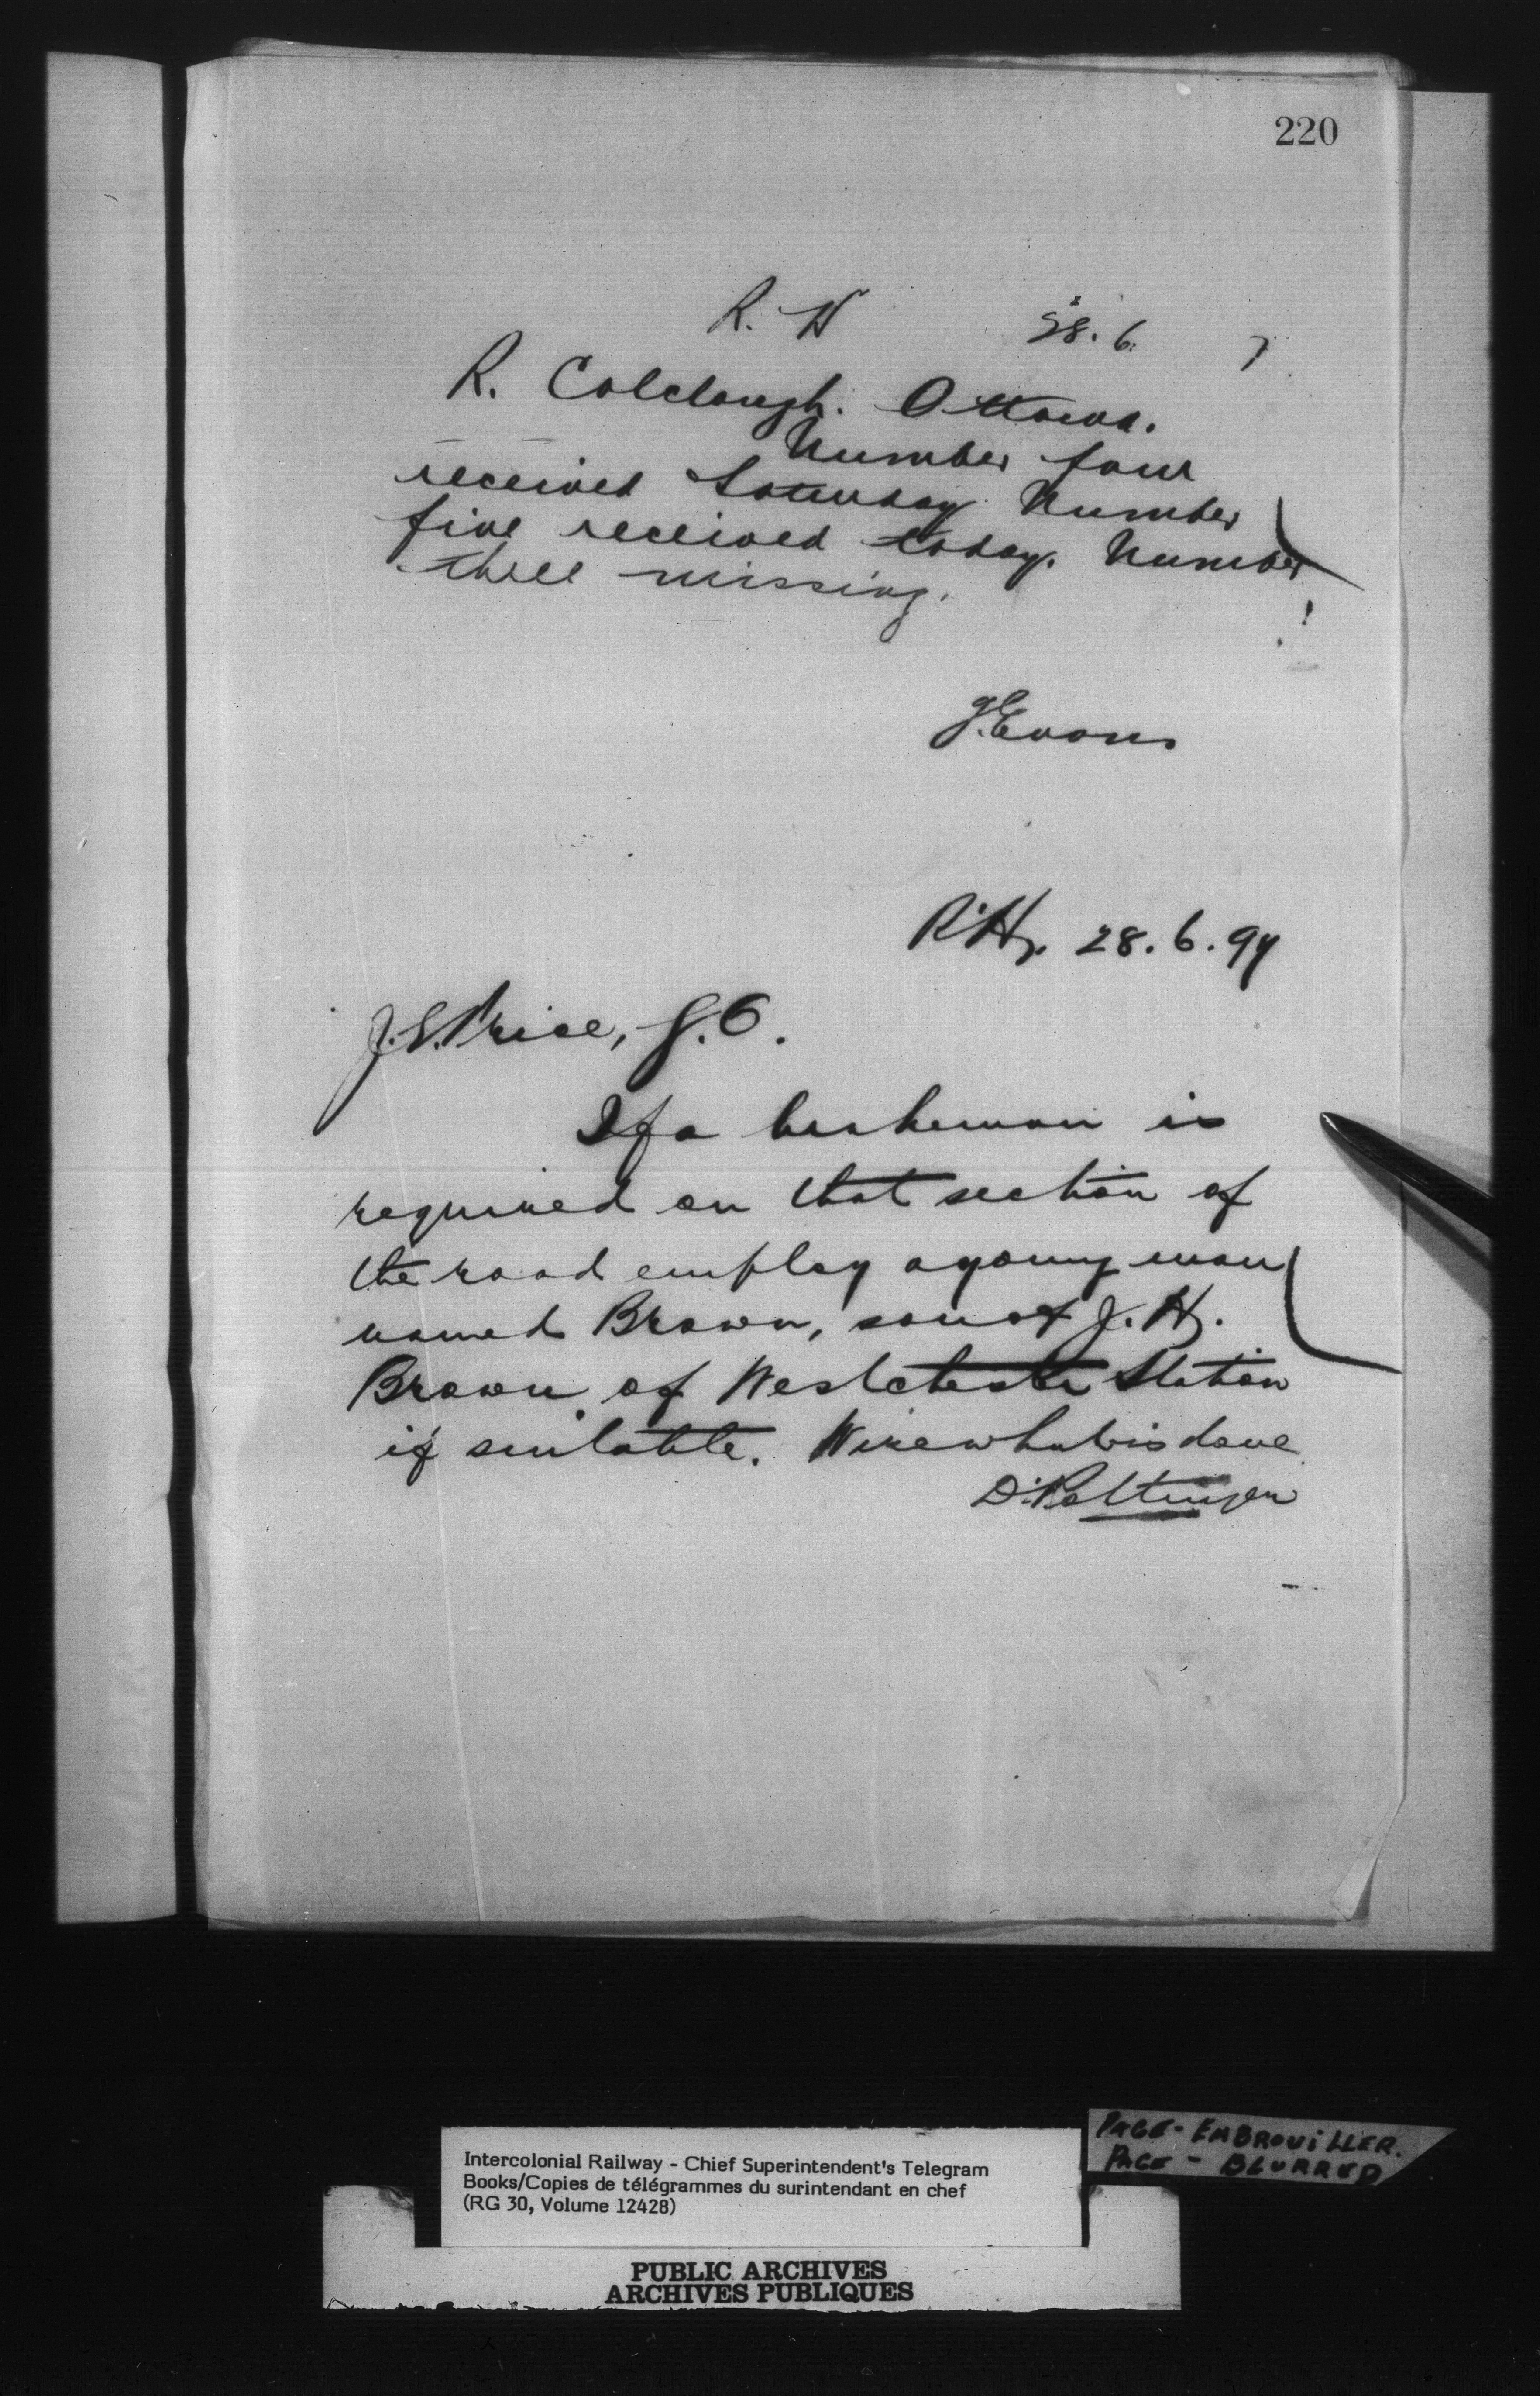 220
R. H 28. 6. 7
R. Colclough. Ottawa.
Number four
received Saturday Number
five received today. Number
three missing.
J. Evans
R.H. 28. 6. 97
J.E. Price, J.O.
If a brakeman is
required on that section of
the road employ a young man
named Brown, son of J. H.
Brown of Westchester Station
if suitable. Wire what is done
D. Pottinger
Intercolonial Railway - Chief Superintendent's Telegram
Books/Copies de télégrammes du surintendant en chef
(RG 30, Volume 12428)
PAGE - EMBROUILLER.
PAGE - BLURRED
PUBLIC ARCHIVES
ARCHIVES PUBLIQUES